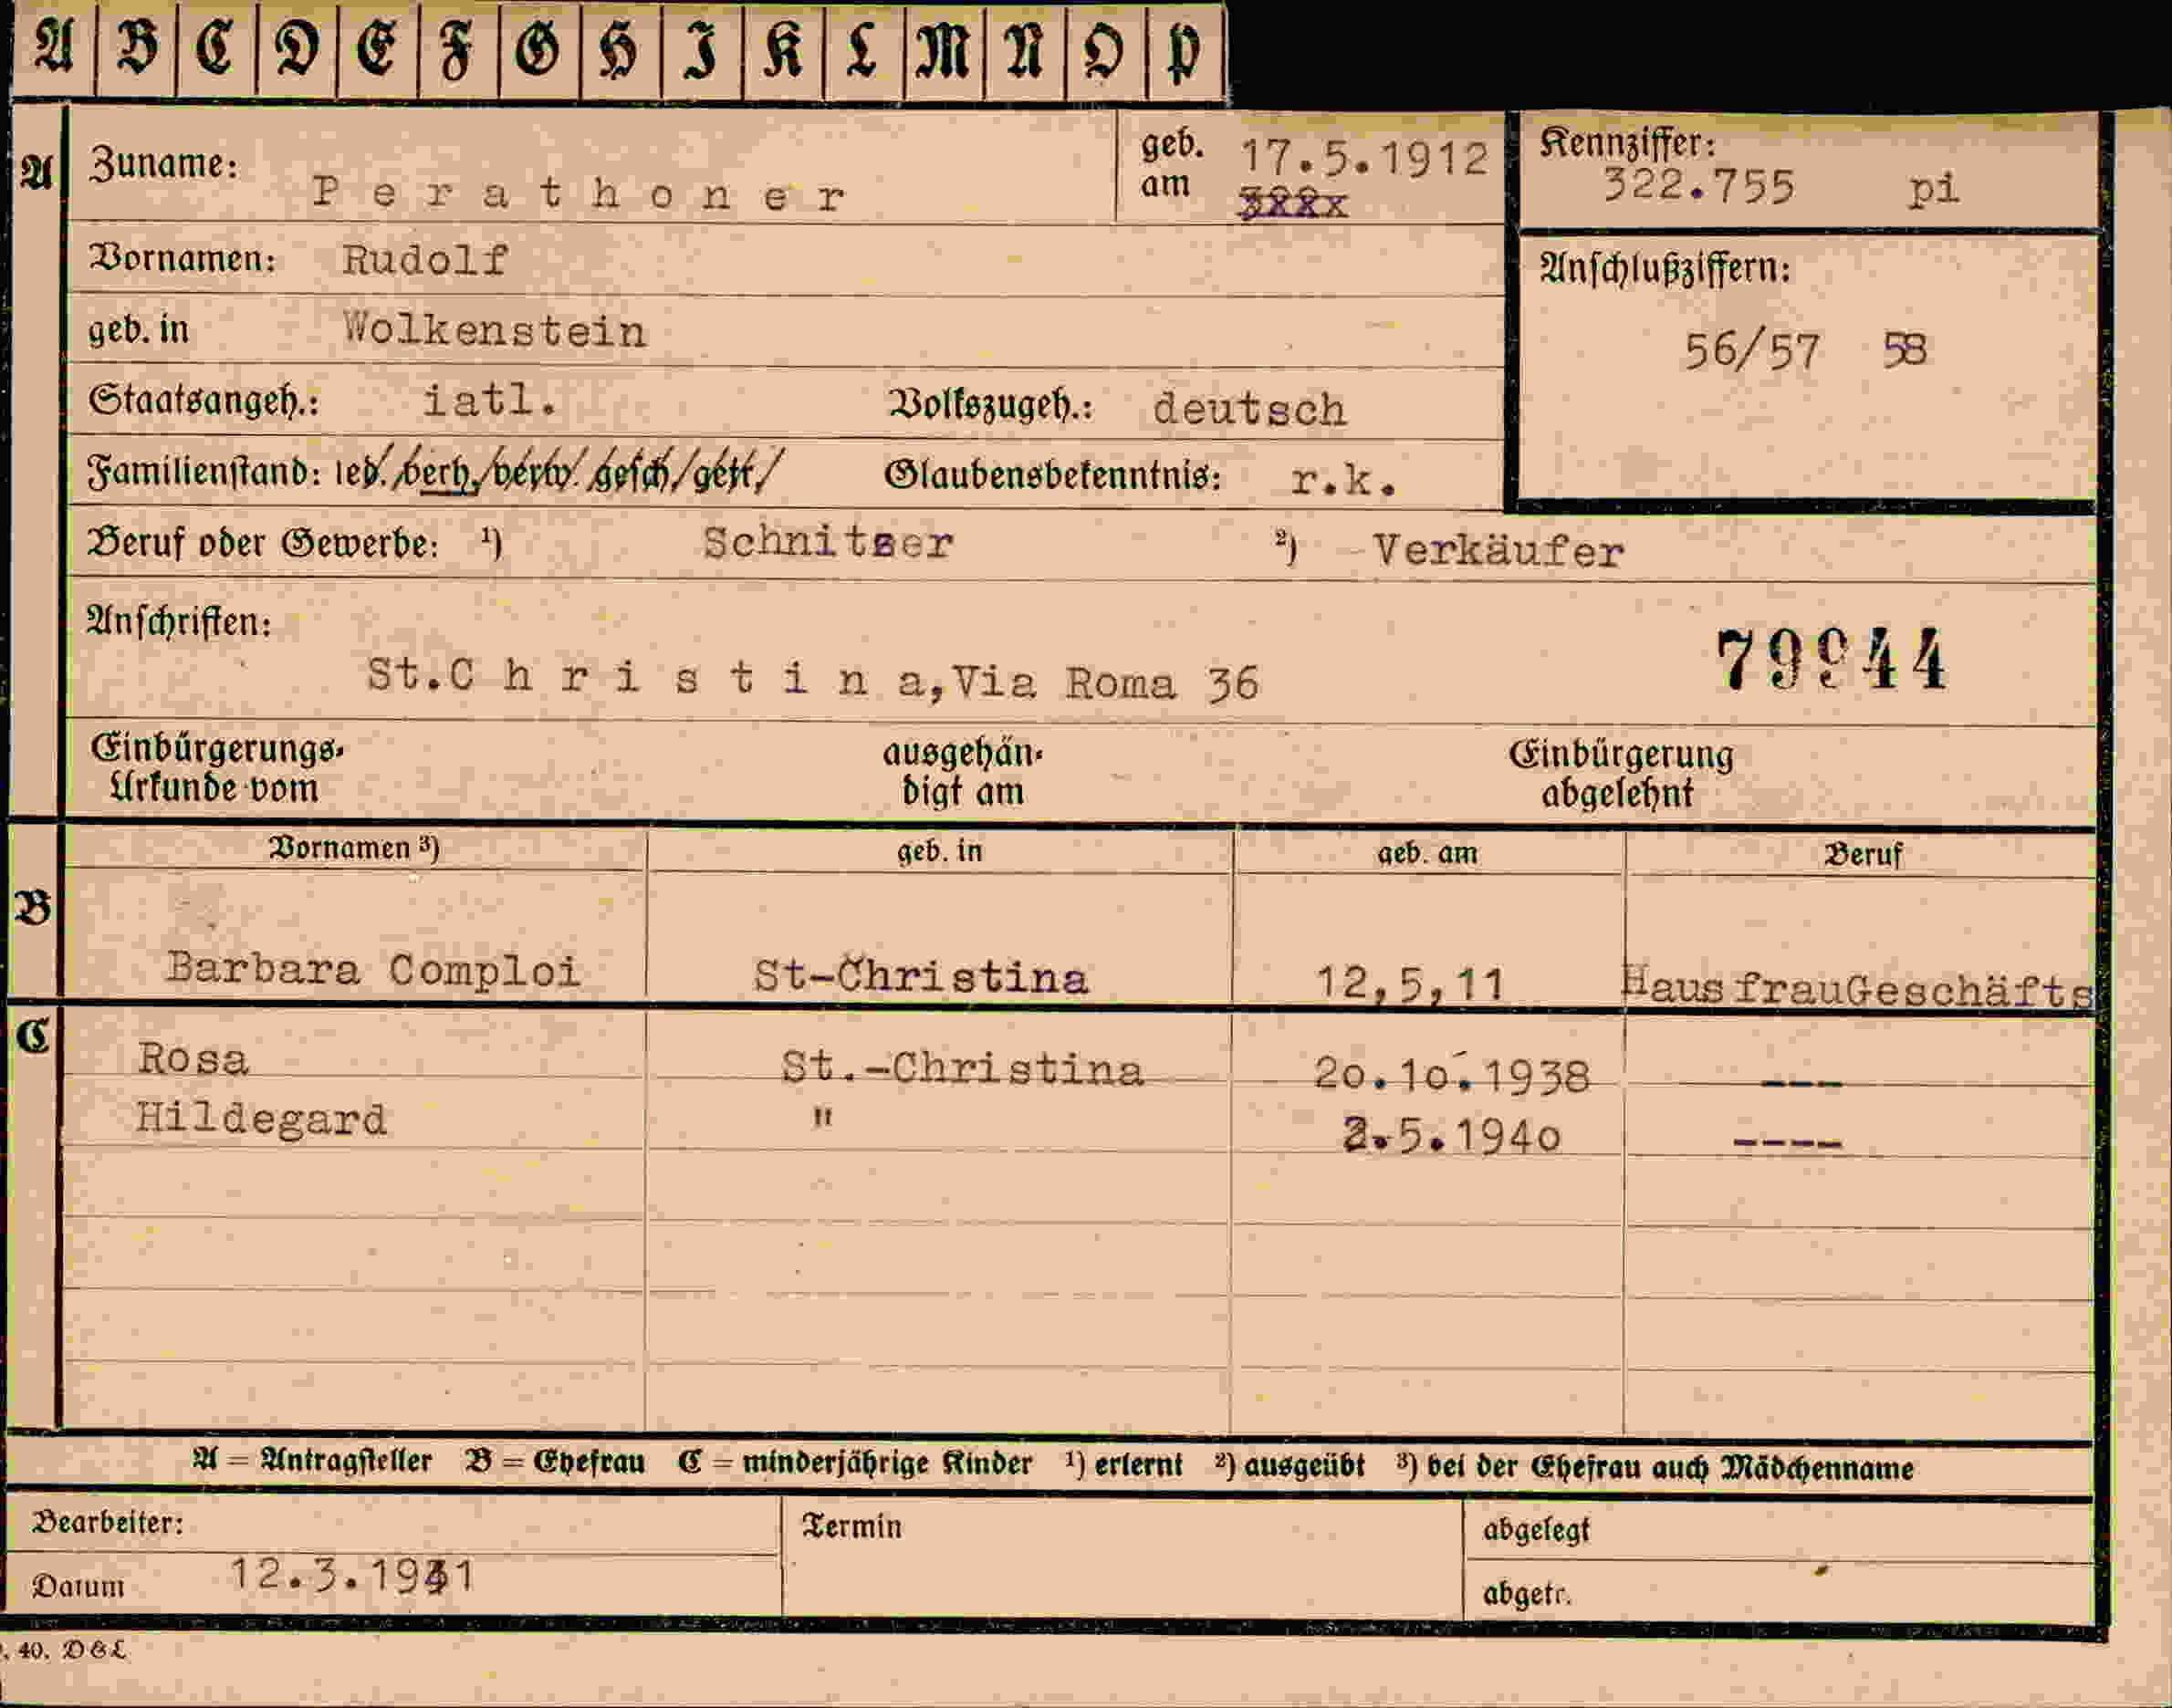 A B C D E F G H I K L M N O P
A Zuname: Perathoner geb. am 17.5.1912 Kennziffer: 322.755 pi
Vornamen: Rudolf
Anschlußziffern:
geb. in Wolkenstein
56/57 58
Staatsangeh.: iatl. Volkszugeh.: deutsch
Familienstand: led./verh./verw./gesch/getr/ Glaubensbekenntnis: r.k.
Beruf oder Gewerbe: ¹) Schnitzer ²) Verkäufer
Anschriften:
St.Christina,Via Roma 36 79944
Einbürgerungs- ausgehän- Einbürgerung
Urkunde vom digt am abgelehnt
Vornamen ³) geb. in geb. am Beruf
B
Barbara Comploi St-Christina 12,5,11 HausfrauGeschäfts
C
Rosa St.-Christina 20.10.1938 ---
Hildegard " 2.5.1940 ----
A = Antragsteller B = Ehefrau C = minderjährige Kinder ¹) erlernt ²) ausgeübt ³) bei der Ehefrau auch Mädchenname
Bearbeiter: Termin abgelegt
Datum 12.3.1941 abgetr.
. 40. DGL